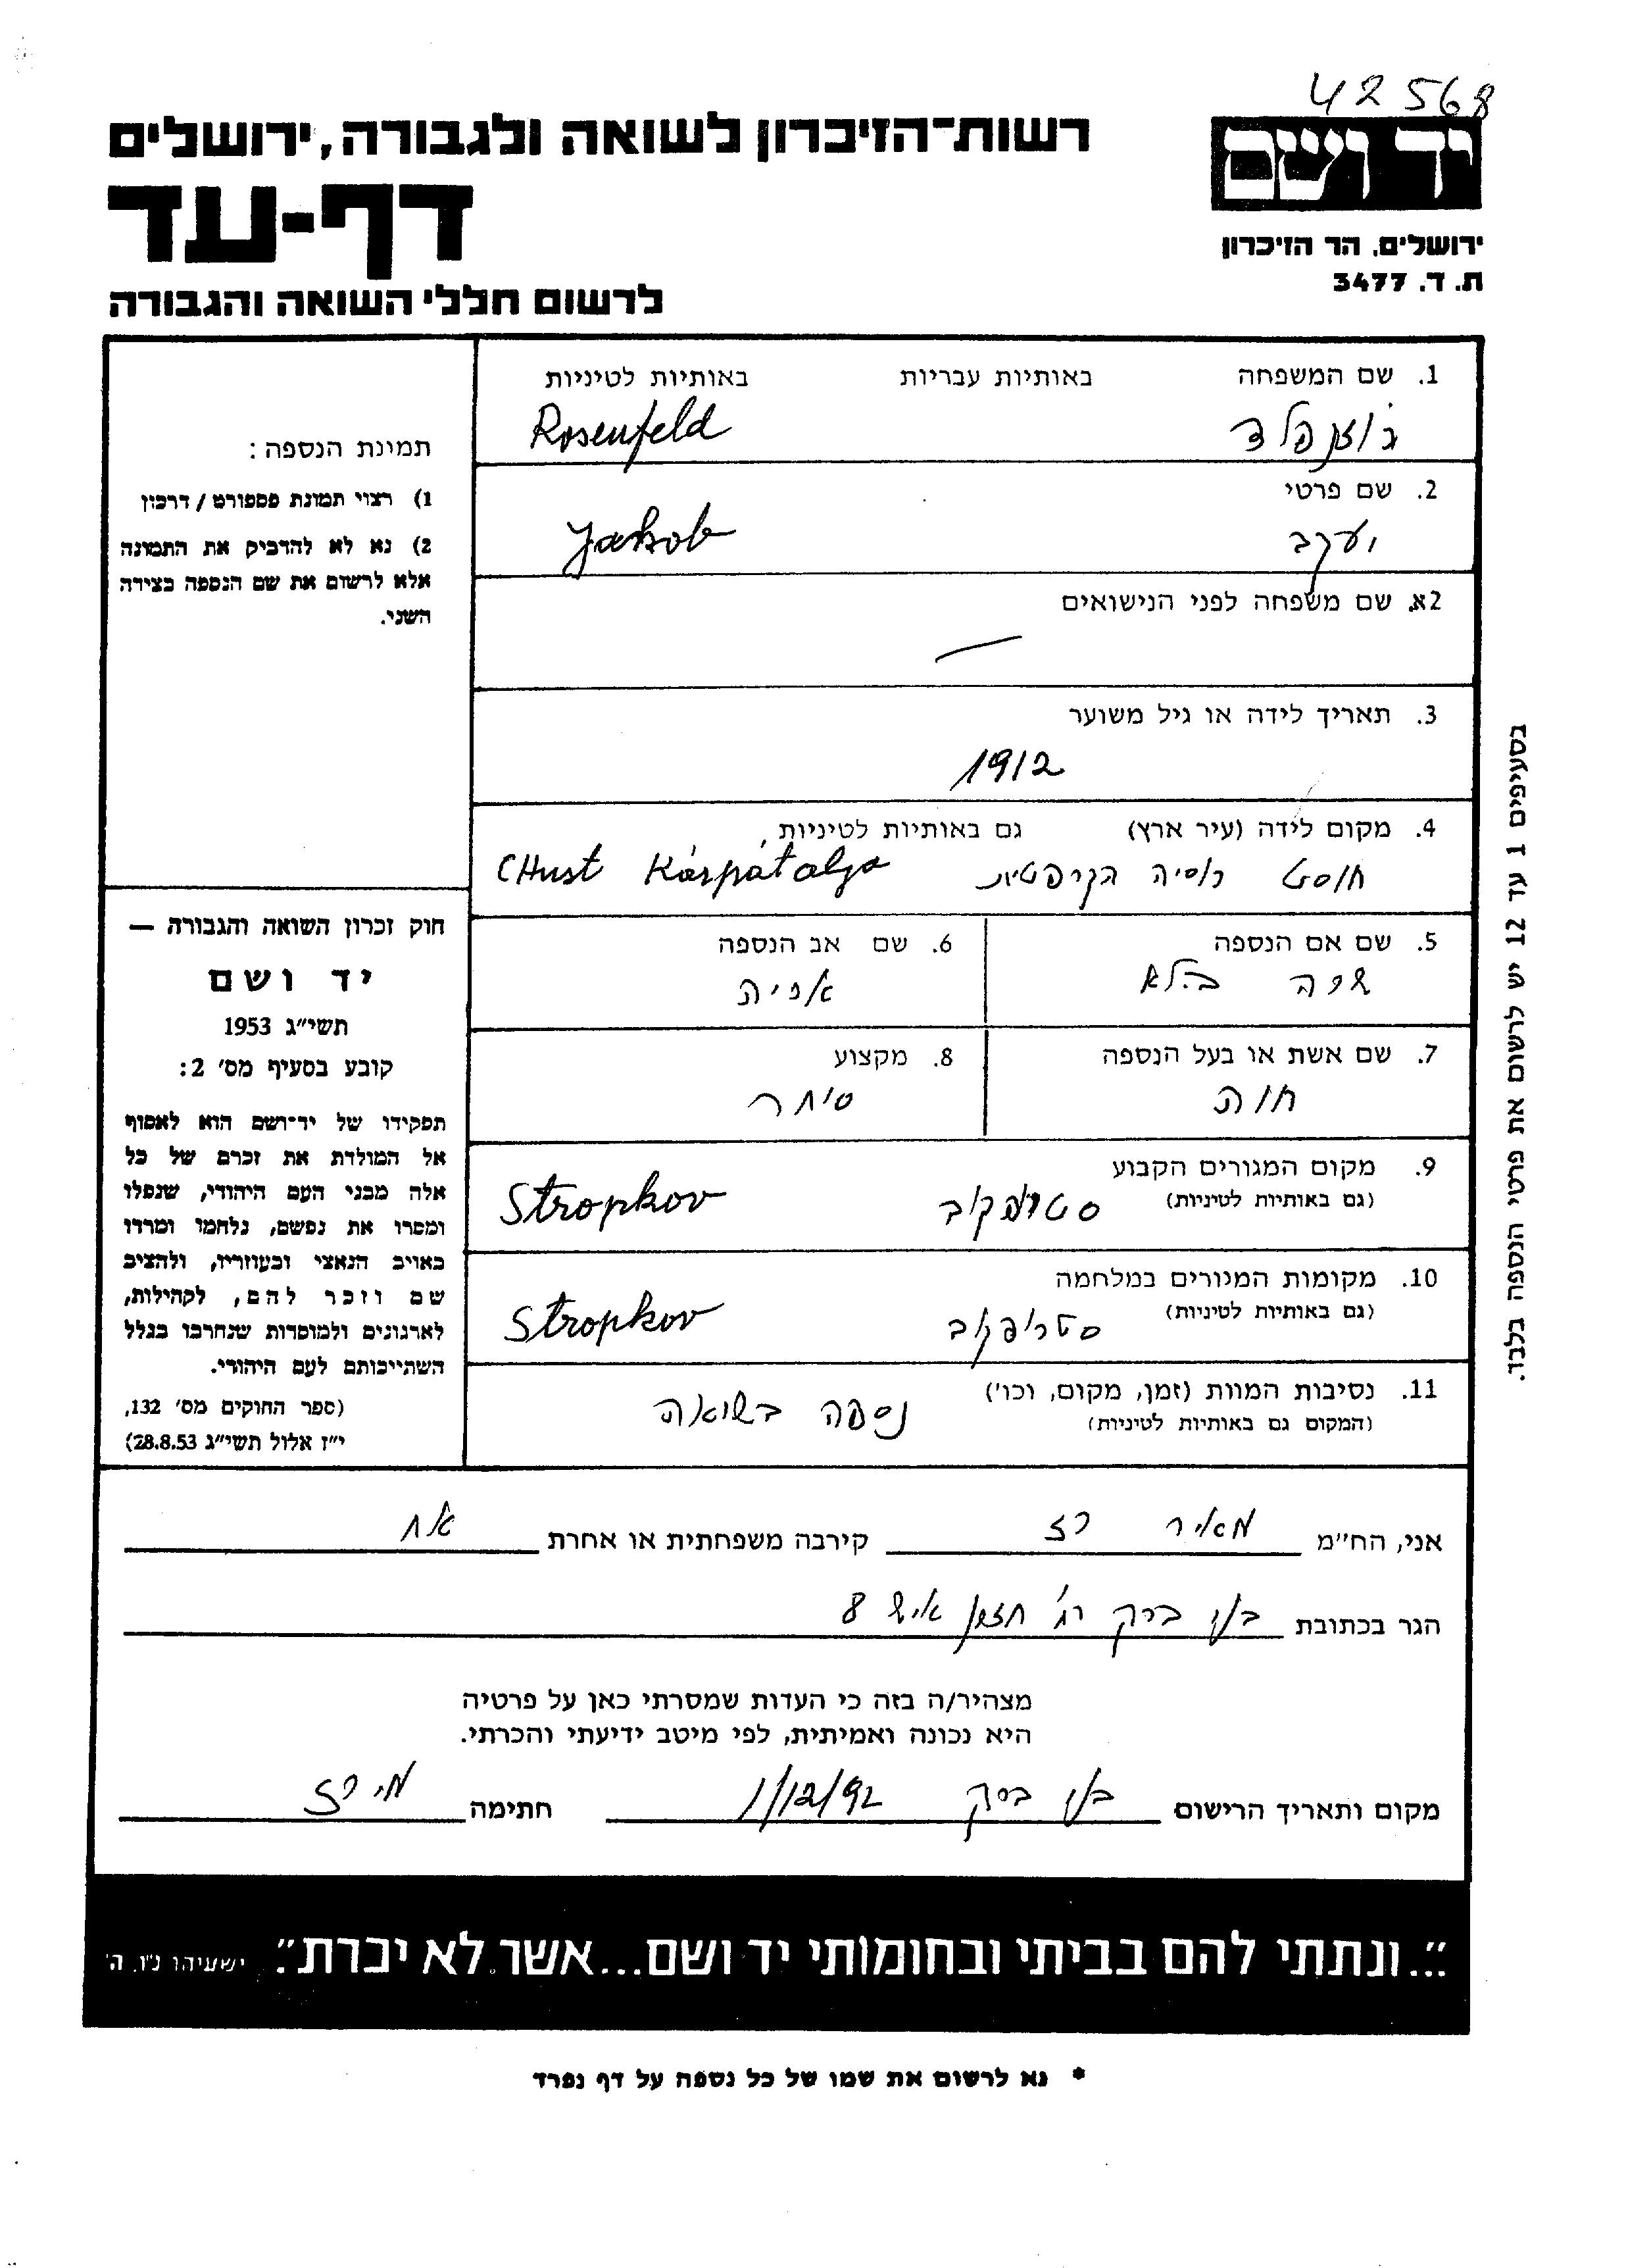 42568
יד ושם
רשות־הזיכרון לשואה ולגבורה, ירושלים
דף-עד
ירושלים. הר הזיכרון
ת. ד. 3477
לרשום חללי השואה והגבורה
1. שם המשפחה באותיות עבריות באותיות לטיניות
רוזנפלד Rosenfeld
2. שם פרטי
יעקב Jakob
2א. שם משפחה לפני הנישואים
—
3. תאריך לידה או גיל משוער
1912
4. מקום לידה (עיר ארץ) גם באותיות לטיניות
חוסט רוסיה הקרפטית CHust Kárpátalja
5. שם אם הנספה 6. שם אב הנספה
שרה בילא
7. שם אשת או בעל הנספה 8. מקצוע
חוה סוחר
9. מקום המגורים הקבוע
(גם באותיות לטיניות)
סטרופקוב Stropkov
10. מקומות המגורים במלחמה
(גם באותיות לטיניות)
סטרופקוב Stropkov
11. נסיבות המוות (זמן, מקום, וכו')
(המקום גם באותיות לטיניות)
נספה בשואה
תמינת הנספה:
1) רצוי תמונת פספורט / דרכון
2) נא לא להדביק את התמונה
אלא לרשום את שם הנספה בצידה
השני.
חוק זכרון השואה והגבורה —
יד ושם
תשי"ג 1953
קובע בסעיף מס' 2:
תפקידו של יד־ושם הוא לאסוף
אל המולדת את זכרם של כל
אלה מבני העם היהודי, שנפלו
ומסרו את נפשם, נלחמו ומרדו
באויב הנאצי ובעוזריו, ולהציב
שם וזכר להם, לקהילות,
לארגונים ולמוסדות שנחרבו בגלל
השתייכותם לעם היהודי.
(ספר החוקים מס' 132,
י"ז אלול תשי"ג 28.8.53)
בסעיפים 1 עד 12 יש לרשום את פרטי הנספה בלבד.
אני, הח"מ מאיר רז קירבה משפחתית או אחרת אח
הגר בכתובת בני ברק רח' חזון איש 8
מצהיר/ה בזה כי העדות שמסרתי כאן על פרטיה
היא נכונה ואמיתית, לפי מיטב ידיעתי והכרתי.
מקום ותאריך הרישום בני ברק 1/12/92 חתימה מ. רז
"...ונתתי להם בביתי ובחומותי יד ושם...אשר לא יכרת". ישעיהו נ"ו, ה'
* נא לרשום את שמו של כל נספה על דף נפרד